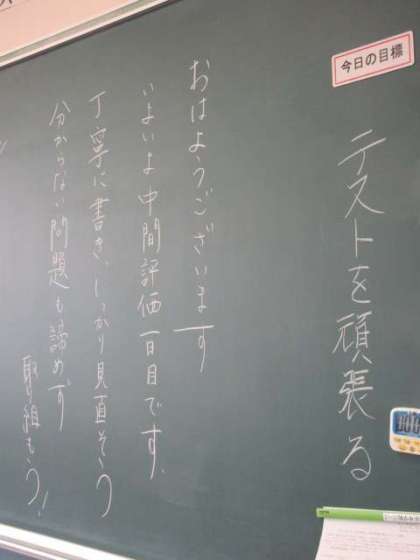 今日の目標
テストを頑張る
おはようございます
いよいよ中間評価一日目です。
丁寧に書き、しっかり見直そう
分からない問題も諦めず
取り組もう!